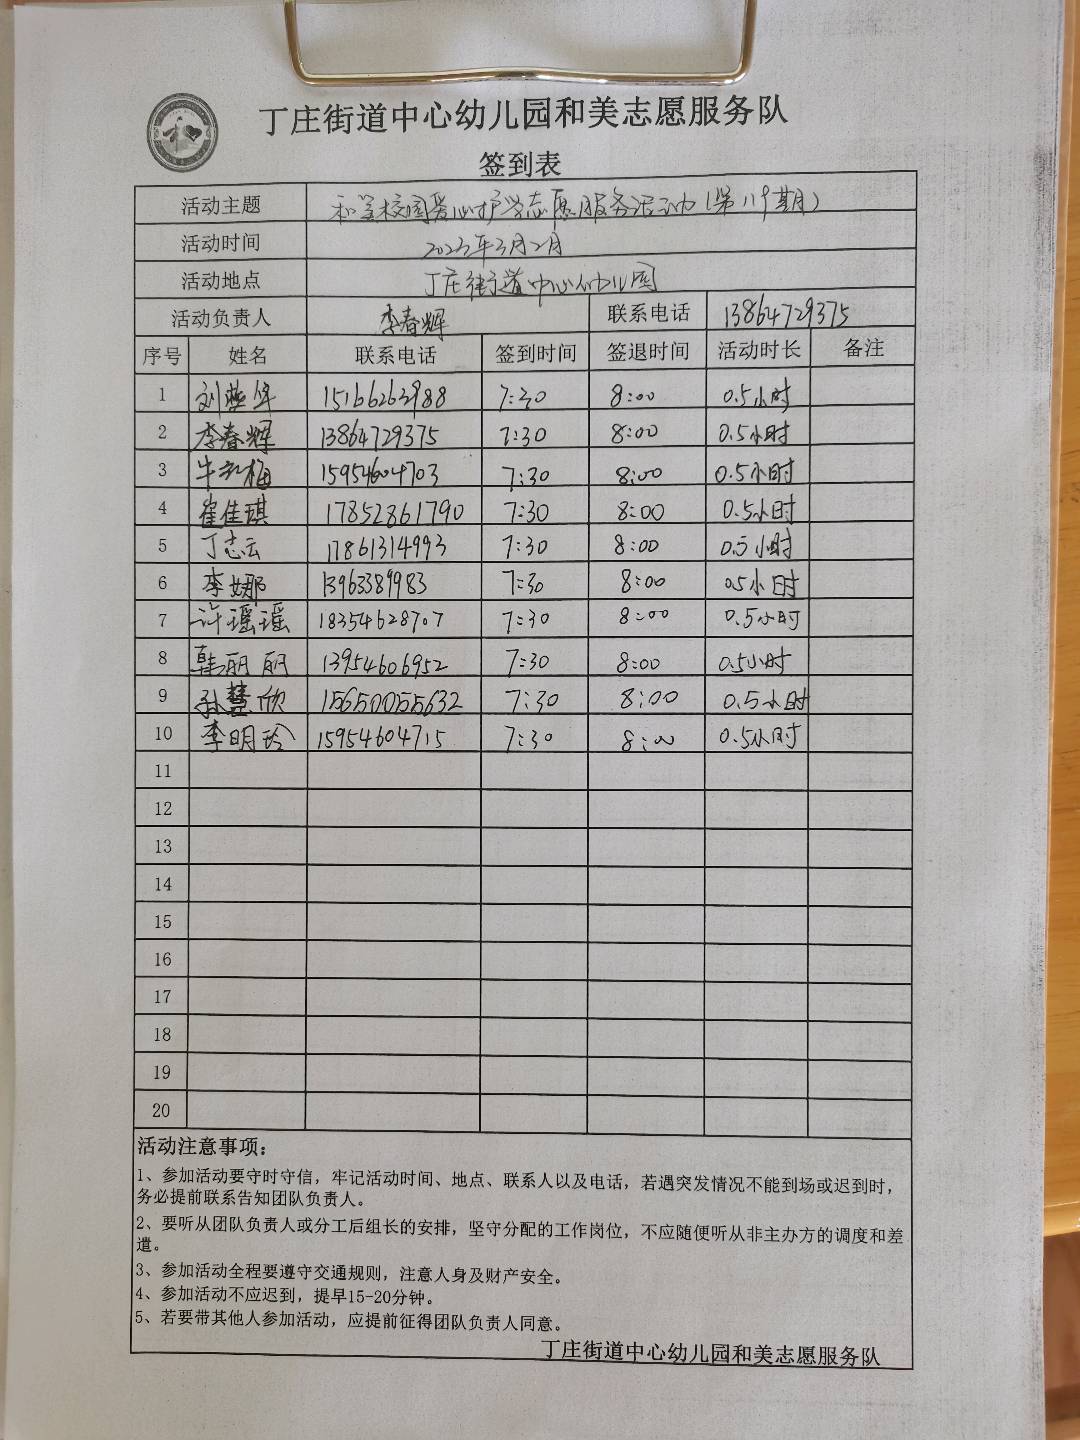 丁庄街道中心幼儿园和美志愿服务队
签到表
活动主题 和美校园爱心护学志愿服务活动(第119期)
活动时间 2023年3月2月
活动地点 丁庄街道中心幼儿园
活动负责人 李春辉 联系电话 13864729375
序号 姓名 联系电话 签到时间 签退时间 活动时长 备注
1 刘燕华 15166263988 7:30 8:00 0.5小时
2 李春辉 13864729375 7:30 8:00 0.5小时
3 牛红梅 15954604703 7:30 8:00 0.5小时
4 崔佳琪 17852861790 7:30 8:00 0.5小时
5 丁志云 17861314993 7:30 8:00 0.5小时
6 李娜 13963389983 7:30 8:00 0.5小时
7 许瑶瑶 18354628707 7:30 8:00 0.5小时
8 韩丽丽 13954606952 7:30 8:00 0.5小时
9 孙慧欣 15650055632 7:30 8:00 0.5小时
10 李明玲 15954604715 7:30 8:00 0.5小时
11
12
13
14
15
16
17
18
19
20
活动注意事项:
1、参加活动要守时守信,牢记活动时间、地点、联系人以及电话,若遇突发情况不能到场或迟到时,
务必提前联系告知团队负责人。
2、要听从团队负责人或分工后组长的安排,坚守分配的工作岗位,不应随便听从非主办方的调度和差
遣。
3、参加活动全程要遵守交通规则,注意人身及财产安全。
4、参加活动不应迟到,提早15-20分钟。
5、若要带其他人参加活动,应提前征得团队负责人同意。
丁庄街道中心幼儿园和美志愿服务队